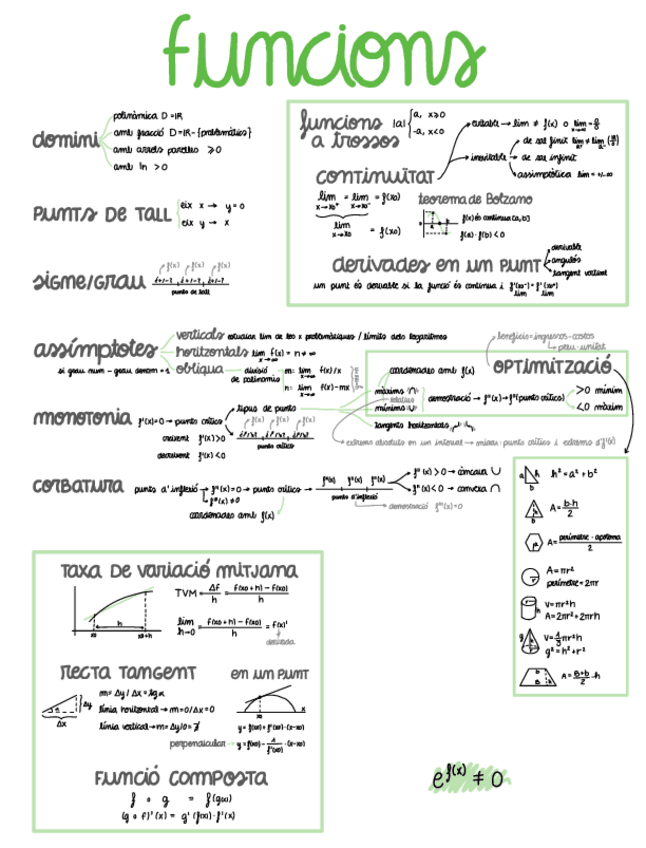 funcions
domini
polinòmica D = IR
amb fracció D = IR - {problemàtics}
amb arrels parelles ≥0
amb ln >0
PUNTS DE TALL
eix x → y = 0
eix y → x
SIGNE/GRAU
f(x) f(x) f(x)
punts de tall
funcions a trossos
|a| { a, x≥0
-a, x<0
CONTINUÏTAT
evitable → lim ≠ f(x) o
inevitable
de salt finit
de salt infinit
asimptòtica lim = +/-∞
lim x→x0⁺ = lim x→x0⁻ = f(x0)
lim x→x0 = f(x0)
teorema de Bolzano
f(x) és contínua (a, b)
f(a) · f(b) < 0
derivades en un punt
derivable
angulós
tangent vertical
un punt és derivable si la funció és contínua i
assímptotes
si grau num - grau denom = 1
verticals estudiar lim de les x problemàtiques / límits dels logaritmes
horitzontals lim x→∞ f(x) = n ≠ ∞
obliqua
divisió de polinomis
m: lim x→∞ f(x)/x
n: lim x→∞ f(x)-mx
beneficis = ingressos - costos
preu · unitat
OPTIMITZACIÓ
coordenades amb f(x)
màxims
mínims
relatius
demostració → f''(x) → f''(punt crític)
>0 mínim
<0 màxim
tangents horitzontals
extrems absoluts en un interval → mirar: punts crítics i extrems d'f(x)
monotonia
f'(x)=0 → punts crítics
tipus de punt
creixent f'(x)>0
decreixent f'(x)<0
punts crítics
CORBATURA
punts d'inflexió → f''(x)=0 → punts crítics
f'''(x) ≠ 0
coordenades amb f(x)
f''(x) f''(x) f''(x)
punts d'inflexió
f''(x) > 0 → còncava ∪
f''(x) < 0 → convexa ∩
demostració f'''(x)=0
a h b
h² = a² + b²
A = b·h / 2
A = perímetre · apotema / 2
A = πr²
perímetre = 2πr
V = πr²h
A = 2πr² + 2πrh
V = 1/3 πr²h
g² = h² + r²
A = B+b / 2 · h
TAXA DE VARIACIÓ MITJANA
h
x0 x0+h
TVM = Δf / h = f(x0+h) - f(x0) / h
lim h→0 = f(x0+h) - f(x0) / h = f(x)'
derivada
RECTA TANGENT
m = Δy / Δx = tg α
línia horitzontal → m = 0/Δx = 0
línia vertical → m = Δy/0 = ∄
Δy
Δx
EN UN PUNT
x0 x
y = f(x0) + f'(x0) · (x-x0)
perpendicular → y = f(x0) - 1/f'(x0) · (x-x0)
FUNCIÓ COMPOSTA
f ∘ g = f(g(x))
(g ∘ f)'(x) = g'(f(x)) · f'(x)
e^f(x) ≠ 0